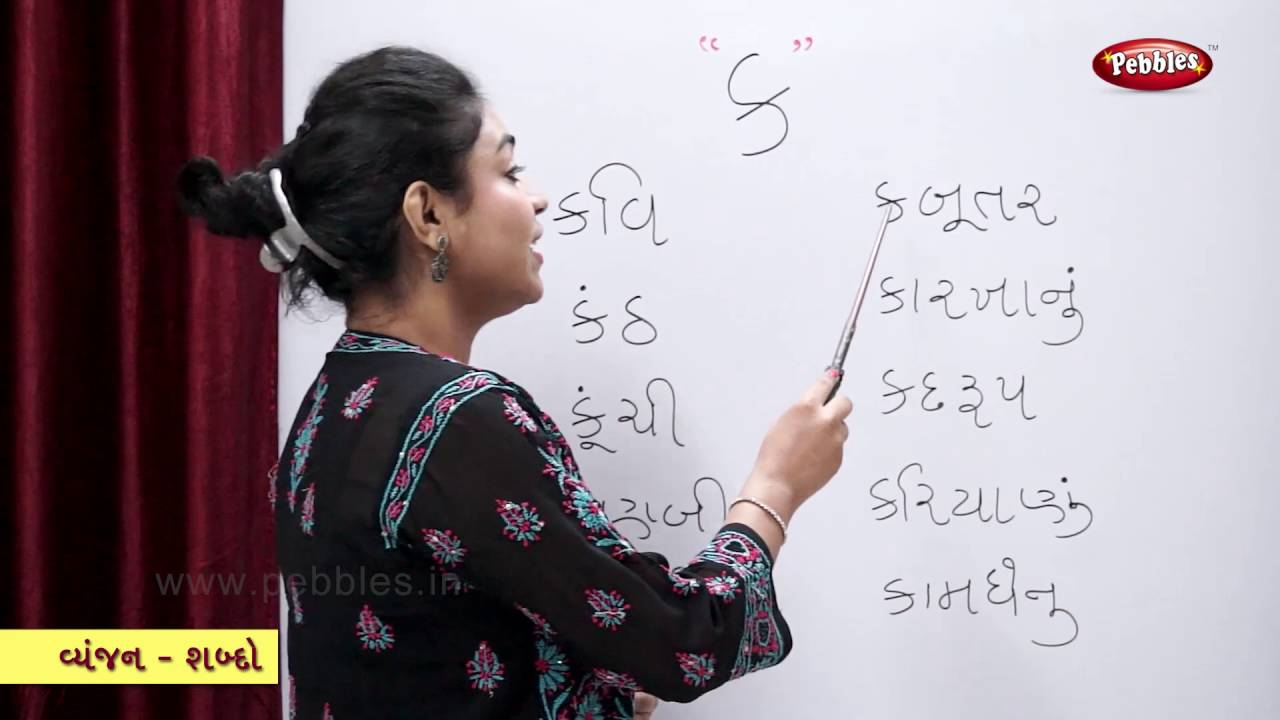 “ક”
Pebbles™
કવિ
કંઠ
કૂંચી
કબૂતર
કારખાનું
કદરૂપ
કરિયાણું
કામધેનુ
www.pebbles.in
વ્યંજન - શબ્દો